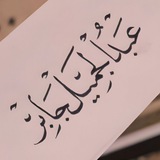 عبدالجميل جابر